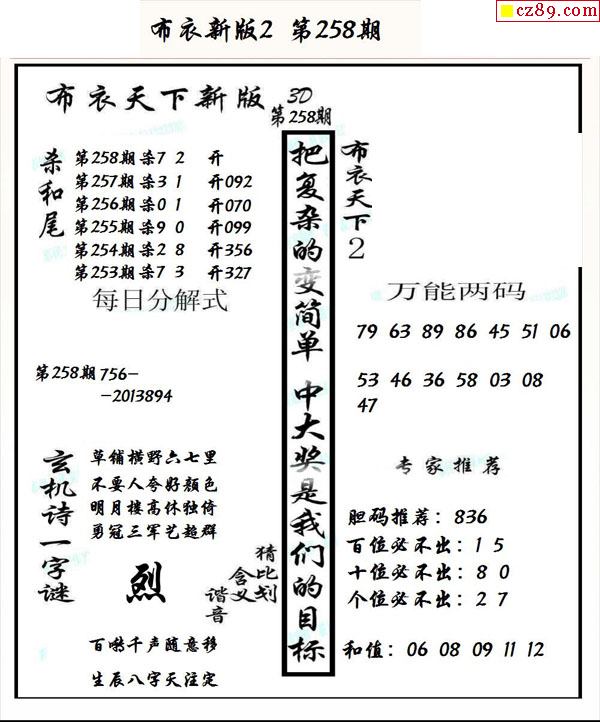 cz89.com
布衣新版2 第258期
布衣天下新版 3D
第258期
杀和尾
第258期杀7 2 开
第257期杀3 1 开092
第256期杀0 1 开070
第255期杀9 0 开099
第254期杀2 8 开356
第253期杀7 3 开327
每日分解式
第258期756-
-2013894
玄机诗一字谜
草铺横野六七里
不要人夸好颜色
明月楼高休独倚
勇冠三军艺超群
烈
猜比划
含义
谐音
百啭千声随意移
生辰八字天注定
把复杂的变简单 中大奖是我们的目标
布衣天下2
万能两码
79 63 89 86 45 51 06
53 46 36 58 03 08
47
专家推荐
胆码推荐：836
百位必不出：1 5
十位必不出：8 0
个位必不出：2 7
和值：06 08 09 11 12